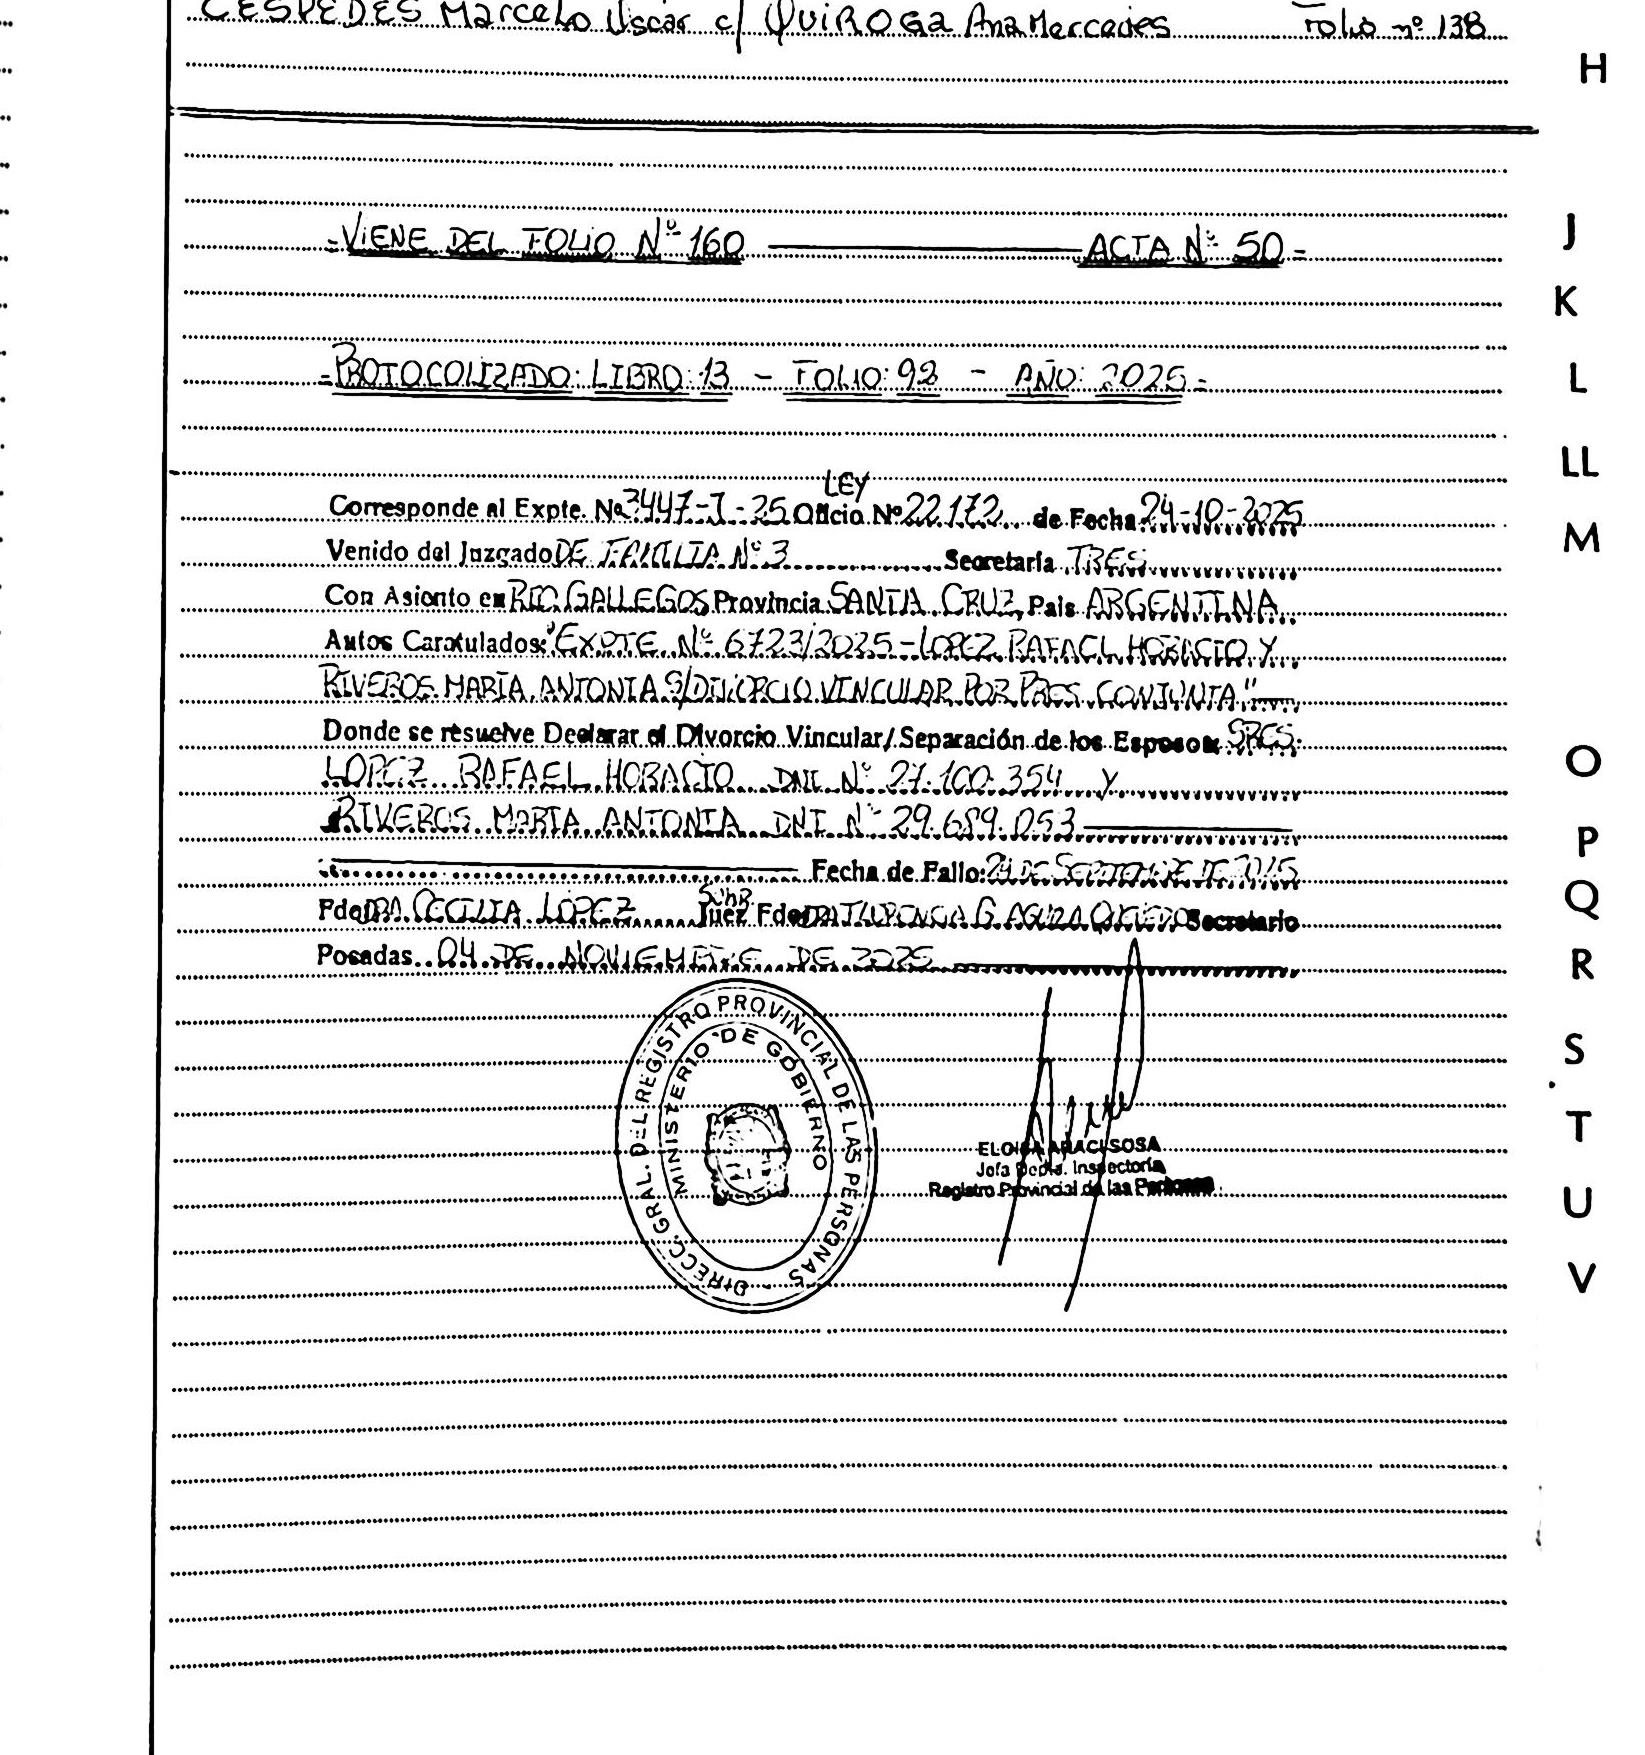 CESPEDES Marcelo Oscar c/ QUIROGA Ana Mercedes Folio nº 138
H
J
- VIENE DEL FOLIO Nº 160 ACTA Nº 50 -
K
- PROTOCOLIZADO: LIBRO: 13 - FOLIO: 92 - AÑO: 2025 -
L
LL
LEY
Corresponde al Expte. Nº 3447-I-25 Oficio Nº 22.172 de Fecha 24-10-2025
M
Venido del Juzgado DE FAMILIA Nº 3 Secretaría TRES
Con Asiento en RIO GALLEGOS Provincia SANTA CRUZ País ARGENTINA
Autos Caratulados: "EXPTE Nº 6723/2025-LOPEZ RAFAEL HORACIO Y
RIVEROS MARÍA ANTONIA S/DIVORCIO VINCULAR POR PRES. CONJUNTA"
Donde se resuelve Declarar el Divorcio Vincular/Separación de los Esposos: SRES:
O
LOPEZ RAFAEL HORACIO DNI Nº 27.100.354 Y
RIVEROS MARIA ANTONIA DNI Nº 29.689.053
P
Fecha de Fallo: DE SEPTIEMBRE DE 2025
Q
Fdo: DRA CECILIA LOPEZ Juez Fdo: G. Secretario
Posadas 04 DE NOVIEMBRE DE 2025
R
DIRECC. GRAL. DEL REGISTRO PROVINCIAL DE LAS PERSONAS
MINISTERIO DE GOBIERNO
S
T
ELOISA ARACI SOSA
Jefa Depto. Inspectoría
Registro Provincial de las Personas
U
V